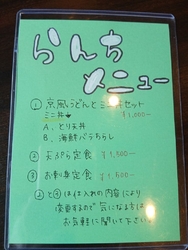 らんち
メニュー
① 京風うどんとミニ丼セット
ミニ丼 ¥1,000-
A、とり天丼
B、海鮮バラちらし
② 天ぷら定食 ¥1,500-
③ お刺身定食 ¥1,500-
②と③は仕入れの内容により
変更するので気になる方は
お気軽に聞いて下さい。